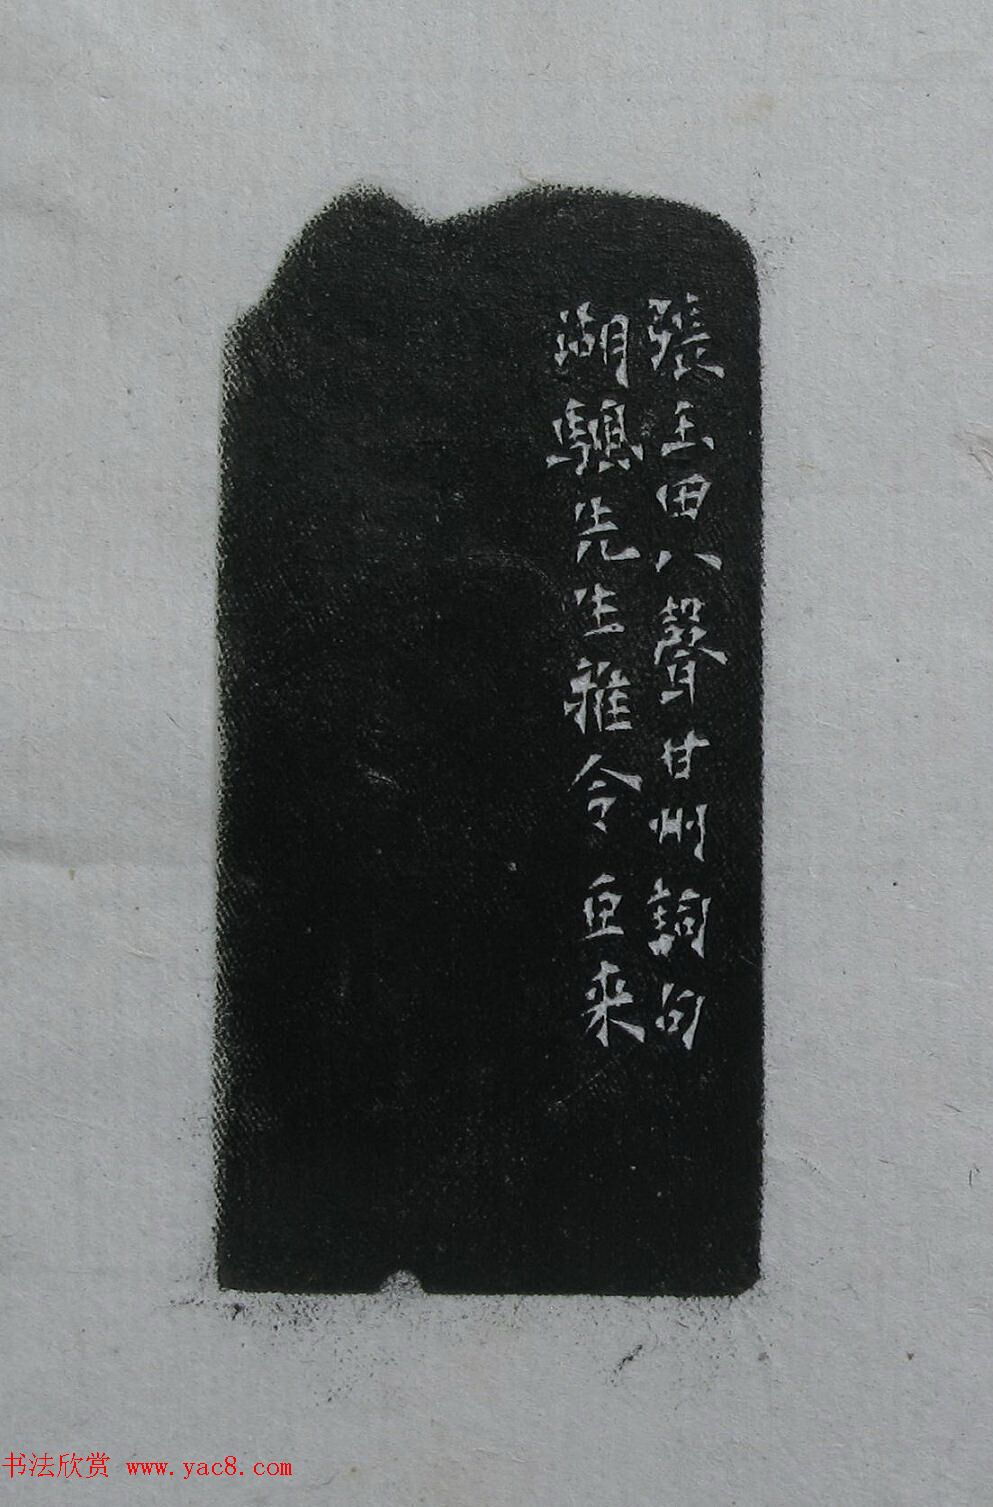 張玉田八聲甘州詞句
湖騩先生雅令 亘來
书法欣赏 www.yac8.com